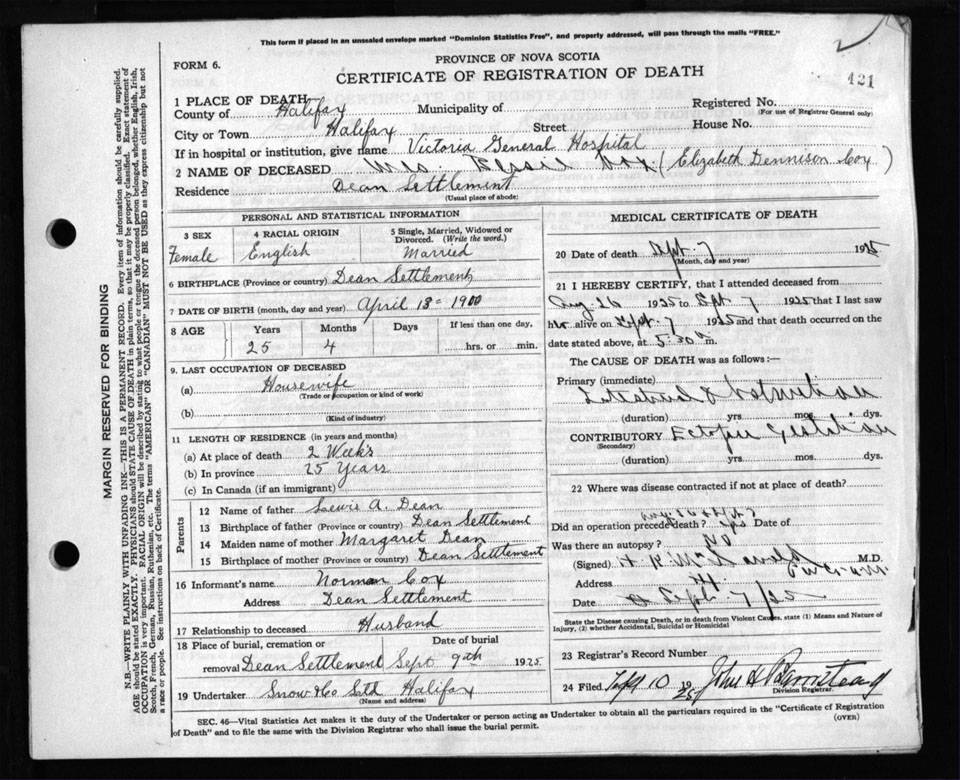 This form if placed in an unsealed envelope marked "Dominion Statistics Free", and properly addressed, will pass through the mails "FREE."
FORM 6.
PROVINCE OF NOVA SCOTIA
CERTIFICATE OF REGISTRATION OF DEATH
421
1 PLACE OF DEATH
County of Halifax Municipality of Registered No.
(For use of Registrar General only)
City or Town Halifax Street House No.
If in hospital or institution, give name Victoria General Hospital
2 NAME OF DECEASED Mrs Bessie Cox (Elizabeth Dennison Cox)
Residence Dean Settlement
(Usual place of abode)
PERSONAL AND STATISTICAL INFORMATION
3 SEX 4 RACIAL ORIGIN 5 Single, Married, Widowed or Divorced. (Write the word.)
Female English Married
6 BIRTHPLACE (Province or country) Dean Settlement
7 DATE OF BIRTH (month, day and year) April 13 1900
8 AGE Years Months Days If less than one day,
25 4 hrs. or min.
9. LAST OCCUPATION OF DECEASED
(a) Housewife
(Trade or occupation or kind of work)
(b)
(Kind of industry)
11 LENGTH OF RESIDENCE (in years and months)
(a) At place of death 2 Weeks
(b) In province 25 Years
(c) In Canada (if an immigrant)
Parents
12 Name of father Lewis A. Dean
13 Birthplace of father (Province or country) Dean Settlement
14 Maiden name of mother Margaret Dean
15 Birthplace of mother (Province or country) Dean Settlement
16 Informant's name Norman Cox
Address Dean Settlement
17 Relationship to deceased Husband
18 Place of burial, cremation or Date of burial
removal Dean Settlement Sept 9th 1925
19 Undertaker Snow & Co Ltd Halifax
(Name and address)
MEDICAL CERTIFICATE OF DEATH
20 Date of death Sept. 7 1925
(Month, day and year)
21 I HEREBY CERTIFY, that I attended deceased from
Aug 26 1925 to Sept 7 1925 that I last saw
her alive on Sept. 7 1925 and that death occurred on the
date stated above, at 5:30 m.
The CAUSE OF DEATH was as follows:—
Primary (immediate)
Intestinal Obstruction
(duration) yrs mos. dys.
CONTRIBUTORY Ectopic Gestation
(Secondary)
(duration) yrs. mos. dys.
22 Where was disease contracted if not at place of death?
Did an operation precede death? yes Date of
Was there an autopsy? No
(Signed) M.D.
Address
Date Sept. 7/25
State the Disease causing Death, or in death from Violent Causes, state (1) Means and Nature of
Injury, (2) whether Accidental, Suicidal or Homicidal
23 Registrar's Record Number
24 Filed Sept 10 1925 John H Barnstead
Division Registrar.
SEC. 46—Vital Statistics Act makes it the duty of the Undertaker or person acting as Undertaker to obtain all the particulars required in the "Certificate of Registration
of Death" and to file the same with the Division Registrar who shall issue the burial permit.
(OVER)
MARGIN RESERVED FOR BINDING
N.B.—WRITE PLAINLY WITH UNFADING INK—THIS IS A PERMANENT RECORD. Every item of information should be carefully supplied.
AGE should be stated EXACTLY. PHYSICIANS should STATE CAUSE OF DEATH in plain terms, so that it may be properly classified. Exact statement of
OCCUPATION is very important. RACIAL ORIGIN will be described by stating to what people or tongue the deceased person belonged, whether English, Irish,
Scotch, French, German, Russian, Ruthenian, etc. The terms "AMERICAN" OR "CANADIAN" MUST NOT BE USED as they express citizenship but not
a race or people. See instructions on back of Certificate.